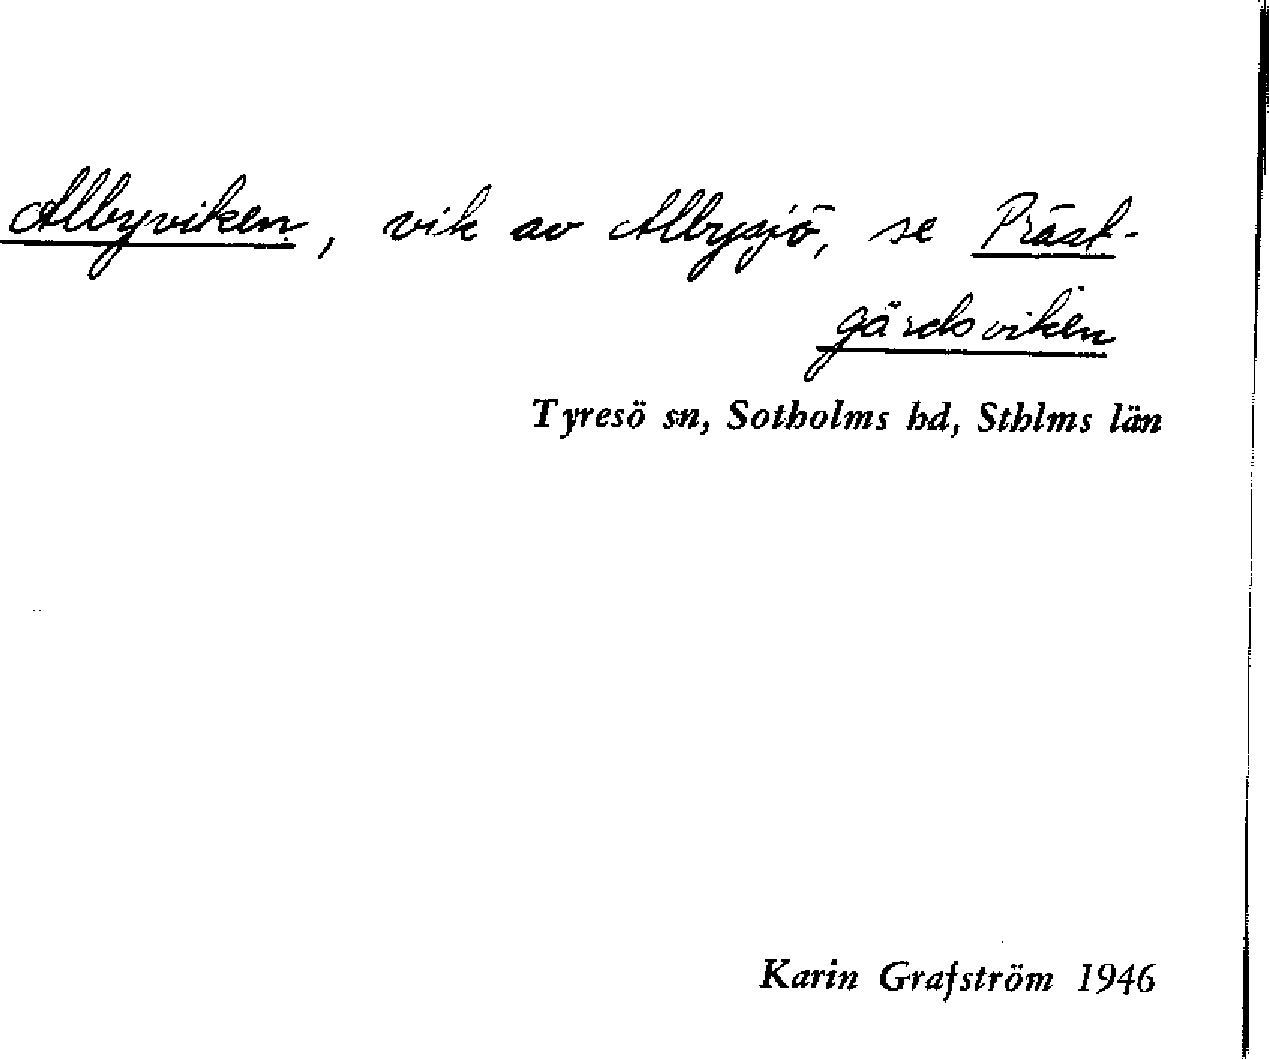 Albyviken, vik av Albysjö, se Präst-
gårdsviken
Tyresö sn, Sotholms hd, Sthlms län
Karin Grafström 1946